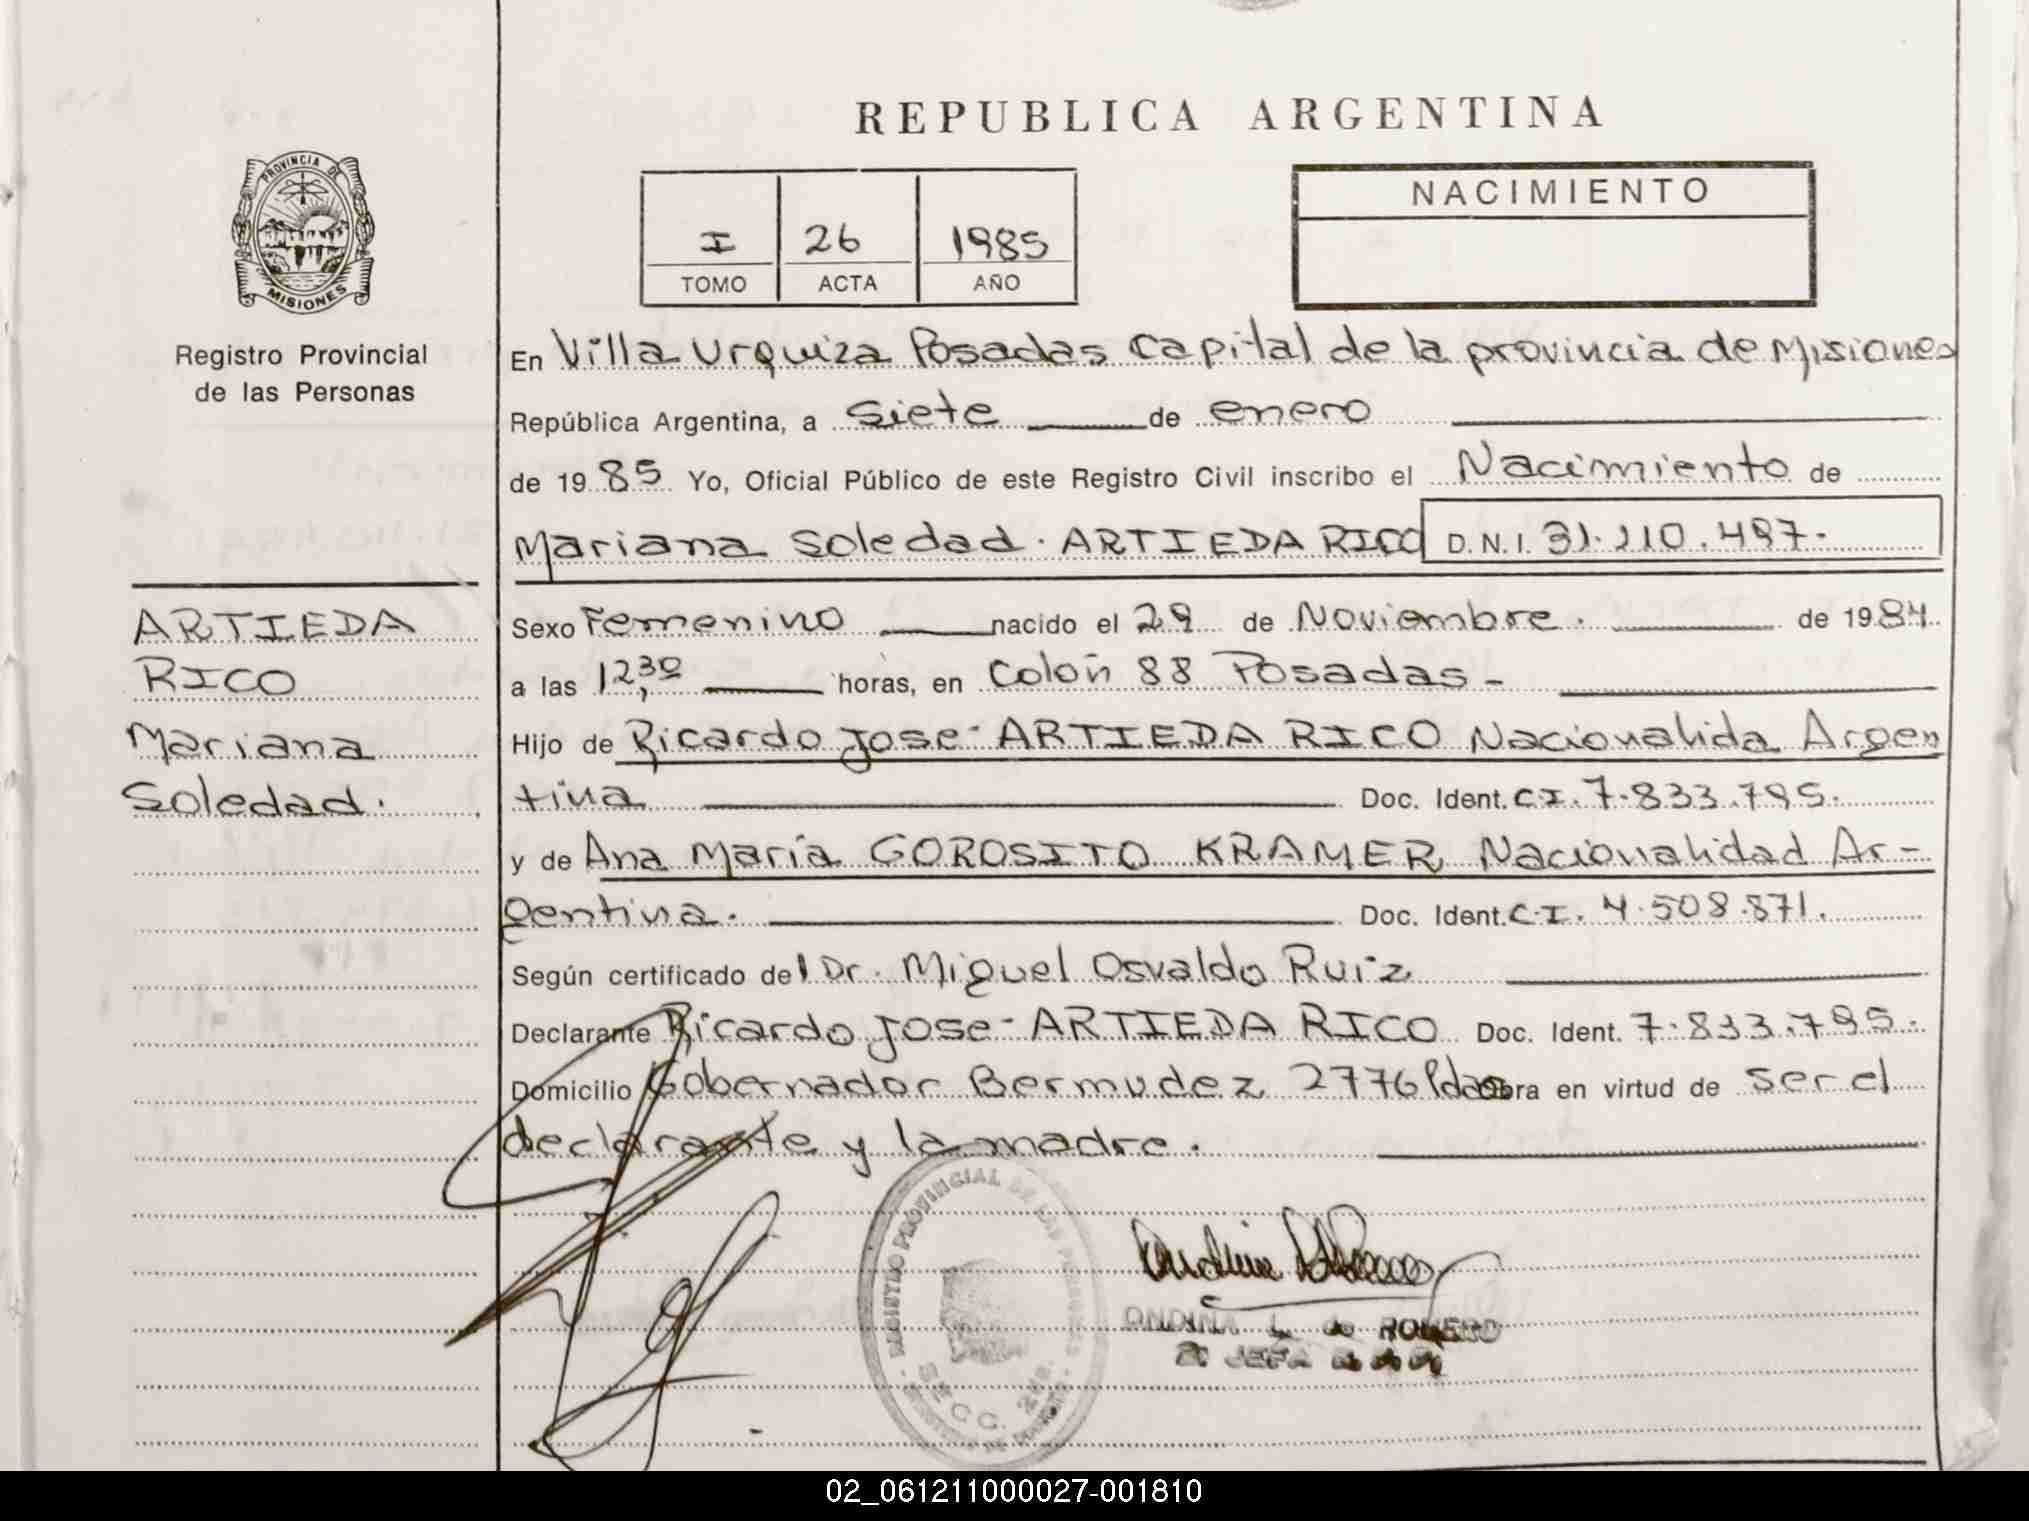 REPUBLICA ARGENTINA
PROVINCIA DE
MISIONES
Registro Provincial
de las Personas
I 26 1985
TOMO ACTA AÑO
NACIMIENTO
En Villa Urquiza Posadas Capital de la provincia de Misiones
República Argentina, a siete de enero
de 1985 Yo, Oficial Público de este Registro Civil inscribo el Nacimiento de
Mariana Soledad. ARTIEDA RICO D.N.I. 31.110.497.
ARTIEDA
RICO
Mariana
Soledad.
Sexo Femenino nacido el 29 de Noviembre. de 1984
a las 12,30 horas, en Colón 88 Posadas-
Hijo de Ricardo Jose- ARTIEDA RICO Nacionalida Argen
tina Doc. Ident. C.I. 7.833.795.
y de Ana María GOROSITO KRAMER Nacionalidad Ar-
gentina. Doc. Ident. C.I. 4.508.871.
Según certificado del Dr. Miguel Osvaldo Ruiz
Declarante Ricardo Jose- ARTIEDA RICO Doc. Ident. 7.833.795.
Domicilio Gobernador Bermudez 2776 Pdas obra en virtud de ser el
declarante y la madre.
REGISTRO PROVINCIAL DE LAS PERSONAS
SECC. 2da.
ONDINA L. de ROMERO
JEFA
02_061211000027-001810